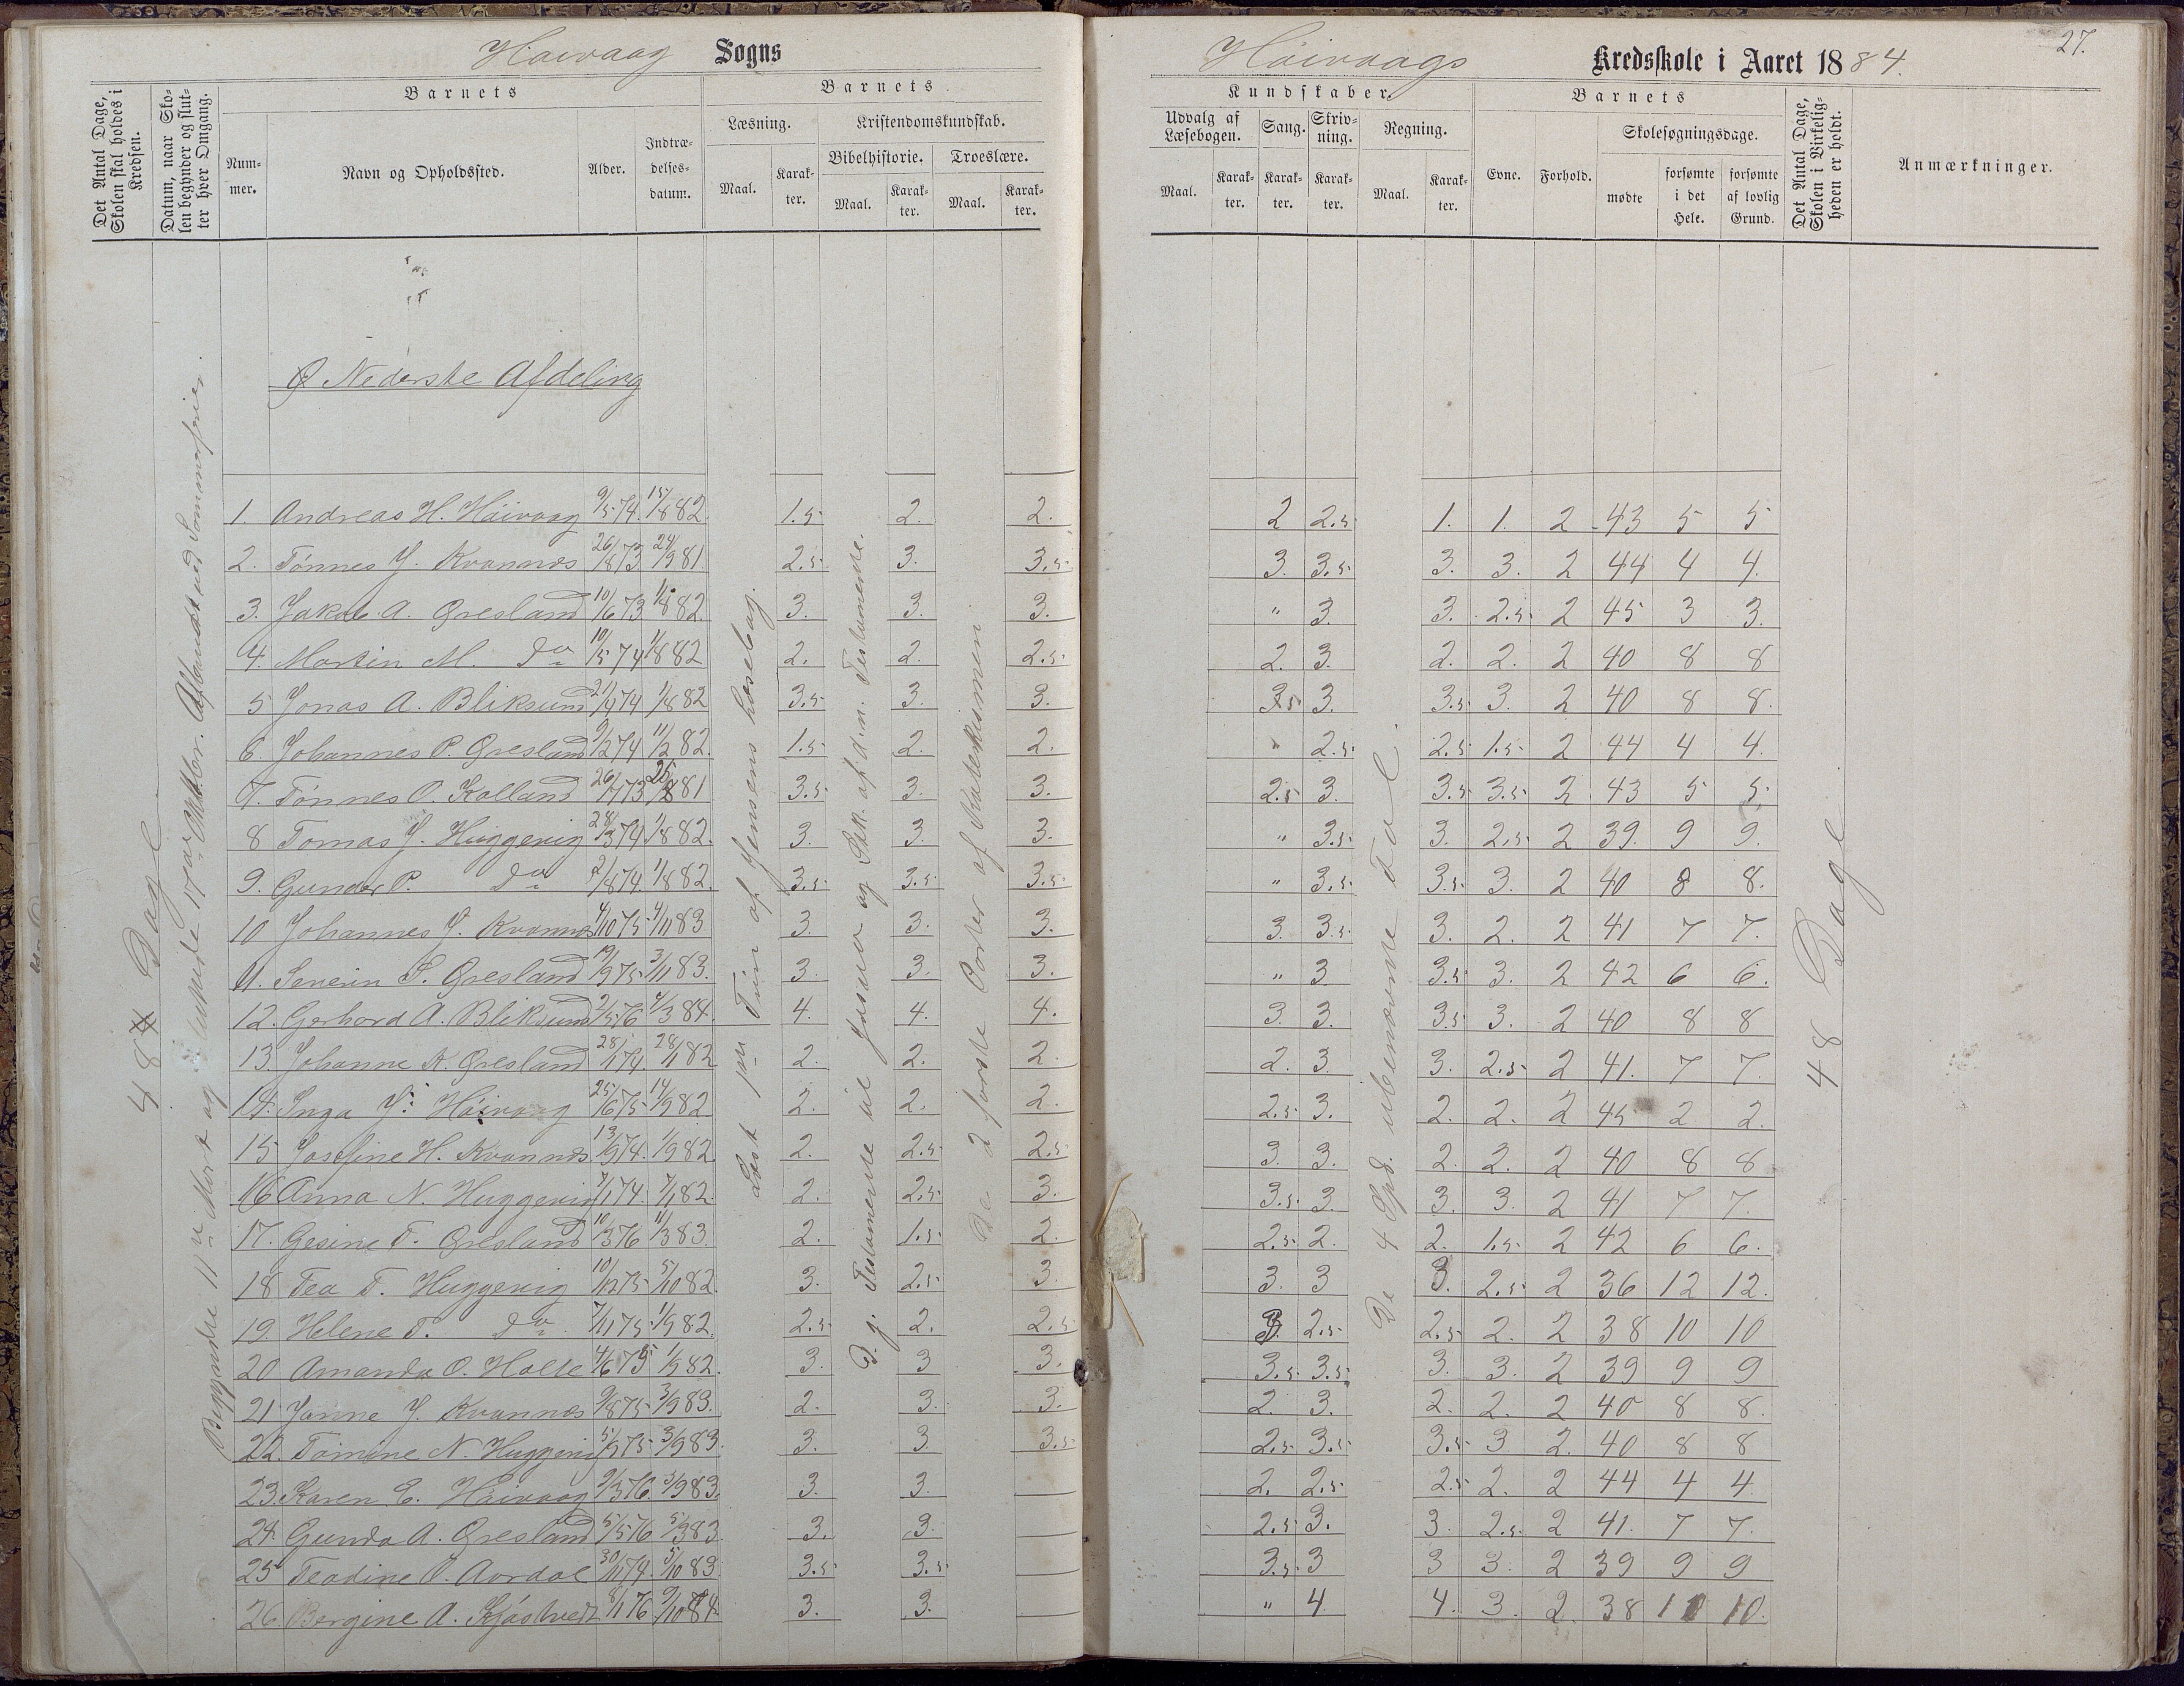 Høivaag Sogns
Høivaags Kredsskole i Aaret 1884.
27.
Det Antal Dage, Skolen skal holdes i Kredsen.
Datum, naar Skolen begynder og slutter hver Omgang.
Barnets
Nummer.
Navn og Opholdssted.
Alder.
Indtrædelsesdatum.
Barnets
Læsning.
Maal.
Karakter.
Kristendomskundskab.
Bibelhistorie.
Maal.
Karakter.
Troeslære.
Maal.
Karakter.
Kundskaber.
Udvalg af Læsebogen.
Maal.
Karakter.
Sang.
Karakter.
Skrivning.
Karakter.
Regning.
Maal.
Karakter.
Barnets
Evne.
Forhold.
Skolesøgningsdage.
mødte
forsømte i det Hele.
forsømte af lovlig Grund.
Det Antal Dage, Skolen i Virkeligheden er holdt.
Anmærkninger.
Nederste Afdeling
48 Dage
Læst pu Trin af Jensens læsebog.
De 2 første Parter af Katekismen
De 4 Spd. ubenævnte Tal.
48 Dage
1. Andreas H. Høivaag 9/5 74. 15/8 82. 1.5 2. 2. 2 2.5 1. 1. 2 43 5 5
2. Tønnes J. Kvannes 26/8 73 24/9 81. 2.5 3. 3.5 3. 3.5 3. 3. 2 44 4 4.
3. Jakob A. Øresland 10/6 73 1/8 82. 3. 3. 3. " 3. 3. 2.5 2 45 3 3.
4. Martin M. do 10/5 74 1/8 82 2. 2. 2.5 2. 3. 2. 2. 2 40 8 8
5 Jonas A. Bliksund 21/4 74 1/8 82 3.5 3. 3. 3.5 3. 3.5 3. 2 40 8 8.
6. Johannes P. Øresland 9/2 74 11/2 82. 1.5 2. 2. " 2.5 2.5 1.5 2 44 4 4.
7. Tønnes O. Kalland 26/7 73 25/8 81 3.5 3. 3. 2.5 3. 3.5 3.5 2 43 5 5
8 Tomas J. Huggevig 28/3 74. 1/8 82. 3. 3. 3. " 3.5 3. 2.5 2 39. 9 9.
9. Gunder P. do 2/8 74. 1/8 82. 3.5 3.5 3.5 " 3.5 3.5 3. 2 40 8 8.
10 Johannes J. Kvannes 4/10 75 4/11 83 3. 3. 3. 3. 3.5 3. 2. 2 41 7 7.
11. Severin S. Øresland 19/9 75 3/11 83. 3. 3. 3. " 3 3.5 3. 2 42 6 6.
12. Gerhard A. Bliksund 2/5 76 4/3 84. 4. 4. 4. 3. 3. 3.5 3. 2 40 8 8
13. Johanne K. Øresland 28/1 74. 28/1 82 2. 2. 2. 2. 3. 3. 2.5 2 41. 7 7.
14. Inga J. Høivaag 25/6 75 14/9 82 2. 2. 2. 2.5 3. 2. 2. 2 45 2 2.
15 Josefine H. Kvannes 13/9 74. 1/9 82. 2. 2.5 2.5 3. 3. 2. 2. 2 40 8 8
16 Anna N. Huggevig 7/1 74. 7/1 82. 2. 2.5 3. 3.5 3. 3. 3. 2 41 7 7.
17. Gesine T. Øresland 10/3 76 11/3 83. 2. 1.5 2. 2.5 2. 2. 1.5 2 42 6 6.
18 Tea T. Huggevig 10/12 75 5/10 82. 3. 2.5 3. 3. 3 3. 2.5 2 36 12 12.
19. Helene T. do 7/11 75 1/9 82. 2.5 2. 2.5 3. 2.5 2.5 2. 2 38 10 10
20 Amanda O. Holte 4/6 75 1/9 82. 3. 3 3. 3.5 3.5 3. 3. 2 39 9 9
21 Janne J. Kvannes 9/8 75 3/9 83. 2. 3. 3. 2. 3. 2. 2. 2 40 8 8.
22. Tomine N. Huggevig 5/9 75 3/9 83. 3. 3. 3.5 2.5 3.5 3.5 3 2. 40 8 8
23. Karen E. Høivaag 9/3 76. 3/9 83. 3. 3. 2. 2.5 2.5 2. 2 44 4 4
24. Gunda A. Øresland 5/5 76 5/3 83 3. 3. 2.5 3. 3. 2.5 2 41. 7 7.
25 Teodine O. Aardal 30/11 74. 5/10 83. 3.5 3.5 3.5 3 3 3. 2 39 9 9
26. Bergine A. Kjøstvedt 8/1 76 9/10 84. 3. 3. " 4 4. 3. 2. 38 10 10.